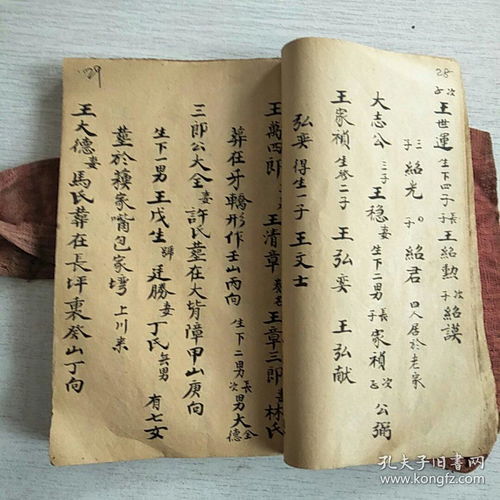 28
次子王世運 生下四子 長子王紹勲 次子紹謨
三子紹光 四子紹君 四人居於老家
大志公 三子王穏 妻生下二男 長子家禎 次子公弼
王家禎 生下二子 王弘奕 王弘献
弘奕 得生一子 王文士
29
王萬四郎 王清章 王章三郎 妻林氏
葬在牙轎形作壬山丙向 生下二男 長男大全 次男大德
三郎公大全 妻許氏墓在大背障甲山庚向
生下一男 王戊生 號廷勝 妻丁氏 無男 有七女
墓於蒋家嘴包家塆 上川来
王大德 妻馬氏葬在長坪東癸山丁向
孔夫子旧书网
www.kongfz.com